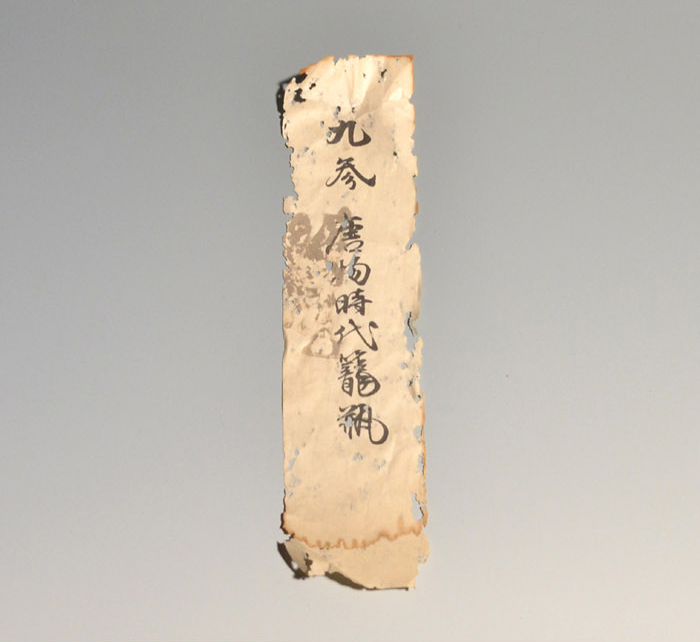 九参 唐物時代籠瓶